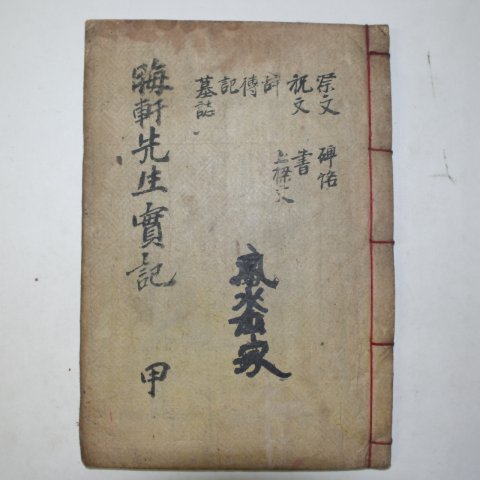 祭文 碑銘
祝文 書
上樑文
傳
記
墓誌
晦軒先生實記 甲